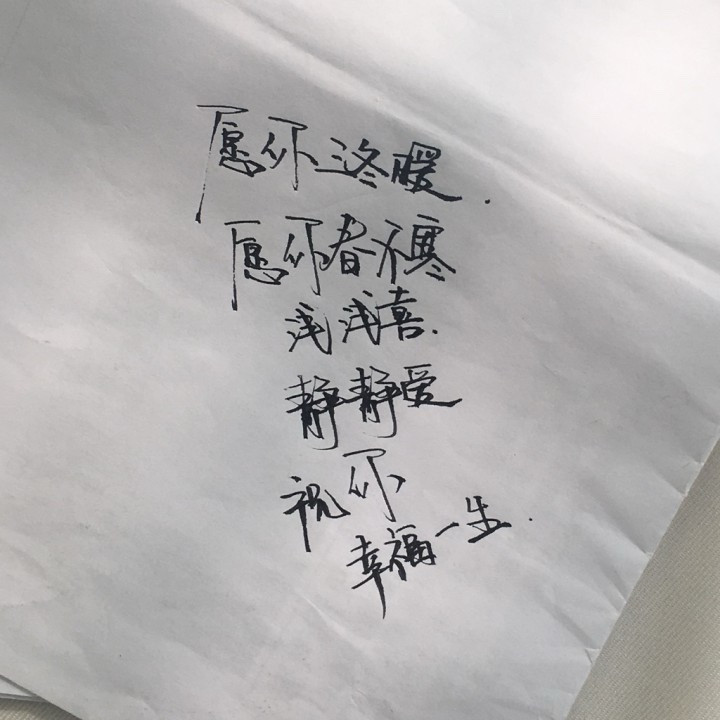 愿你三冬暖.
愿你春不寒
浅浅喜.
静静爱
祝你
幸福一生.